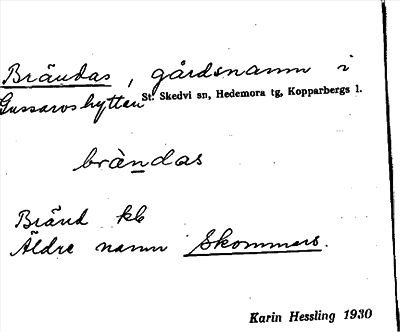 Brändas, gårdsnamn i
Gussarvshyttan St. Skedvi sn, Hedemora tg, Kopparbergs l.
brä̀ndas
Bränd kb
Äldre namn Skommers.
Karin Hessling 1930